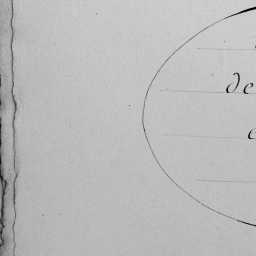 de
e